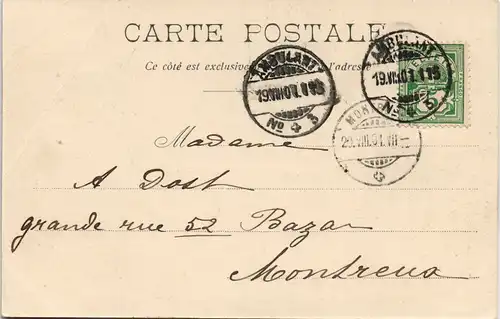 CARTE POSTALE
Ce côté est exclusivement l'adresse
AMBULANT
19.VIII.01.
No 3
AMBULANT
19.VIII.01.
No
5
MON
VIII.01.
Madame
A Dost
grande rue 52 Bazar
Montreux